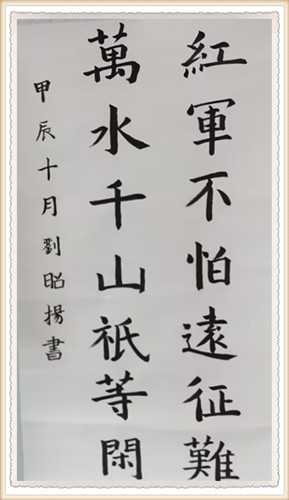 紅軍不怕遠征難
萬水千山祇等閑
甲辰十月劉昭揚書